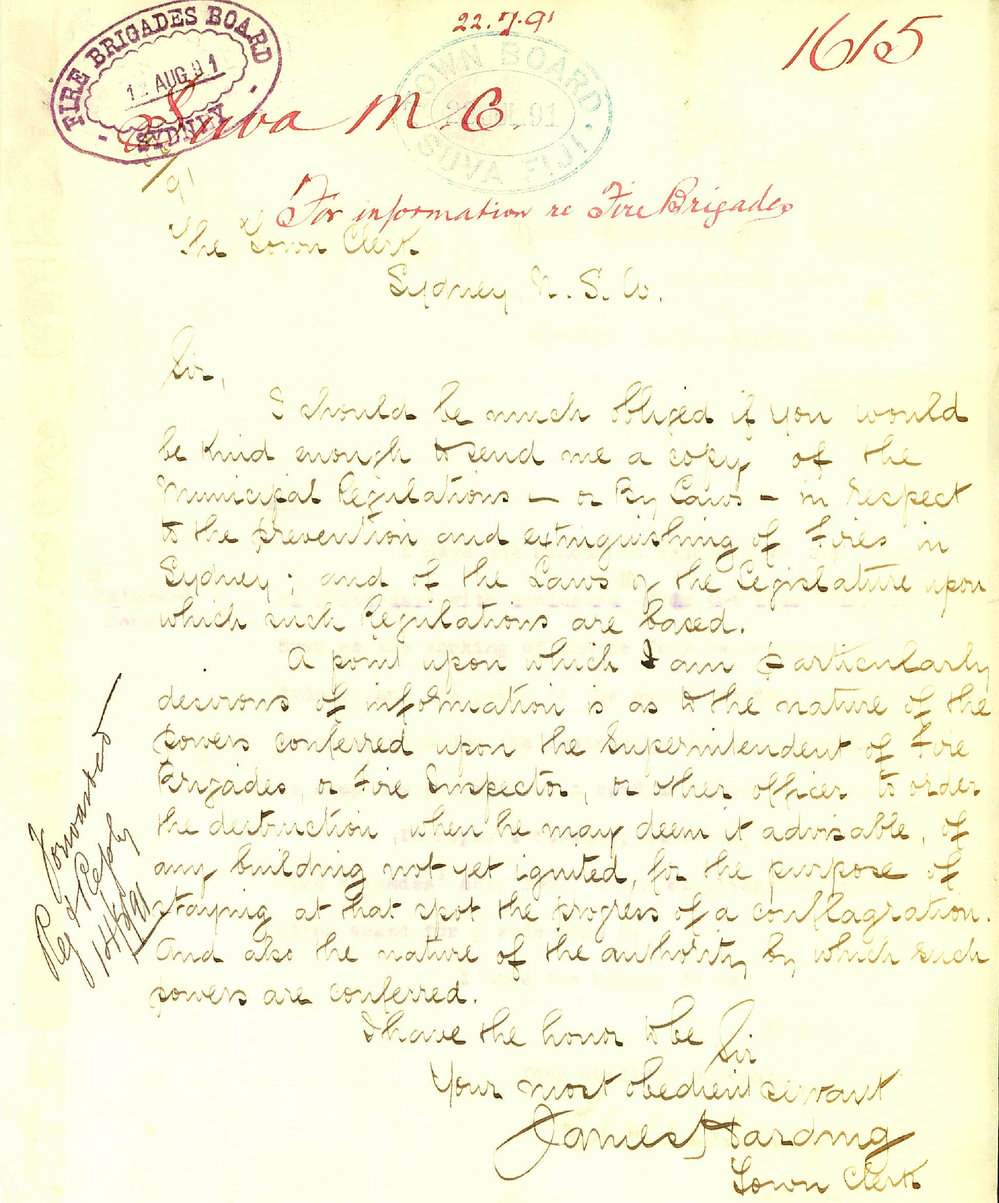 22.7.91
1615
FIRE BRIGADES BOARD
12 AUG 91
SYDNEY
TOWN BOARD
22 JUL 91
SUVA FIJI
Suva M. C.
91
For information re Fire Brigades
The Town Clerk
Sydney, N. S. W.
Sir,
I should be much obliged if you would
be kind enough to send me a copy of the
Municipal Regulations — or By Laws — in respect
to the prevention and extinguishing of Fires in
Sydney; and of the Laws of the Legislature upon
which such Regulations are based.
A point upon which I am particularly
desirous of information is as to the nature of the
powers conferred upon the Superintendent of Fire
Brigades, or Fire Inspector, or other officer to order
the destruction, when he may deem it advisable, of
any building not yet ignited, for the purpose of
staying at that spot the progress of a conflagration.
And also the nature of the authority by which such
powers are conferred.
I have the honor to be
Sir
Your most obedient servant
James Harding
Town Clerk
Forwarded
Reg & Reply
14/8/91